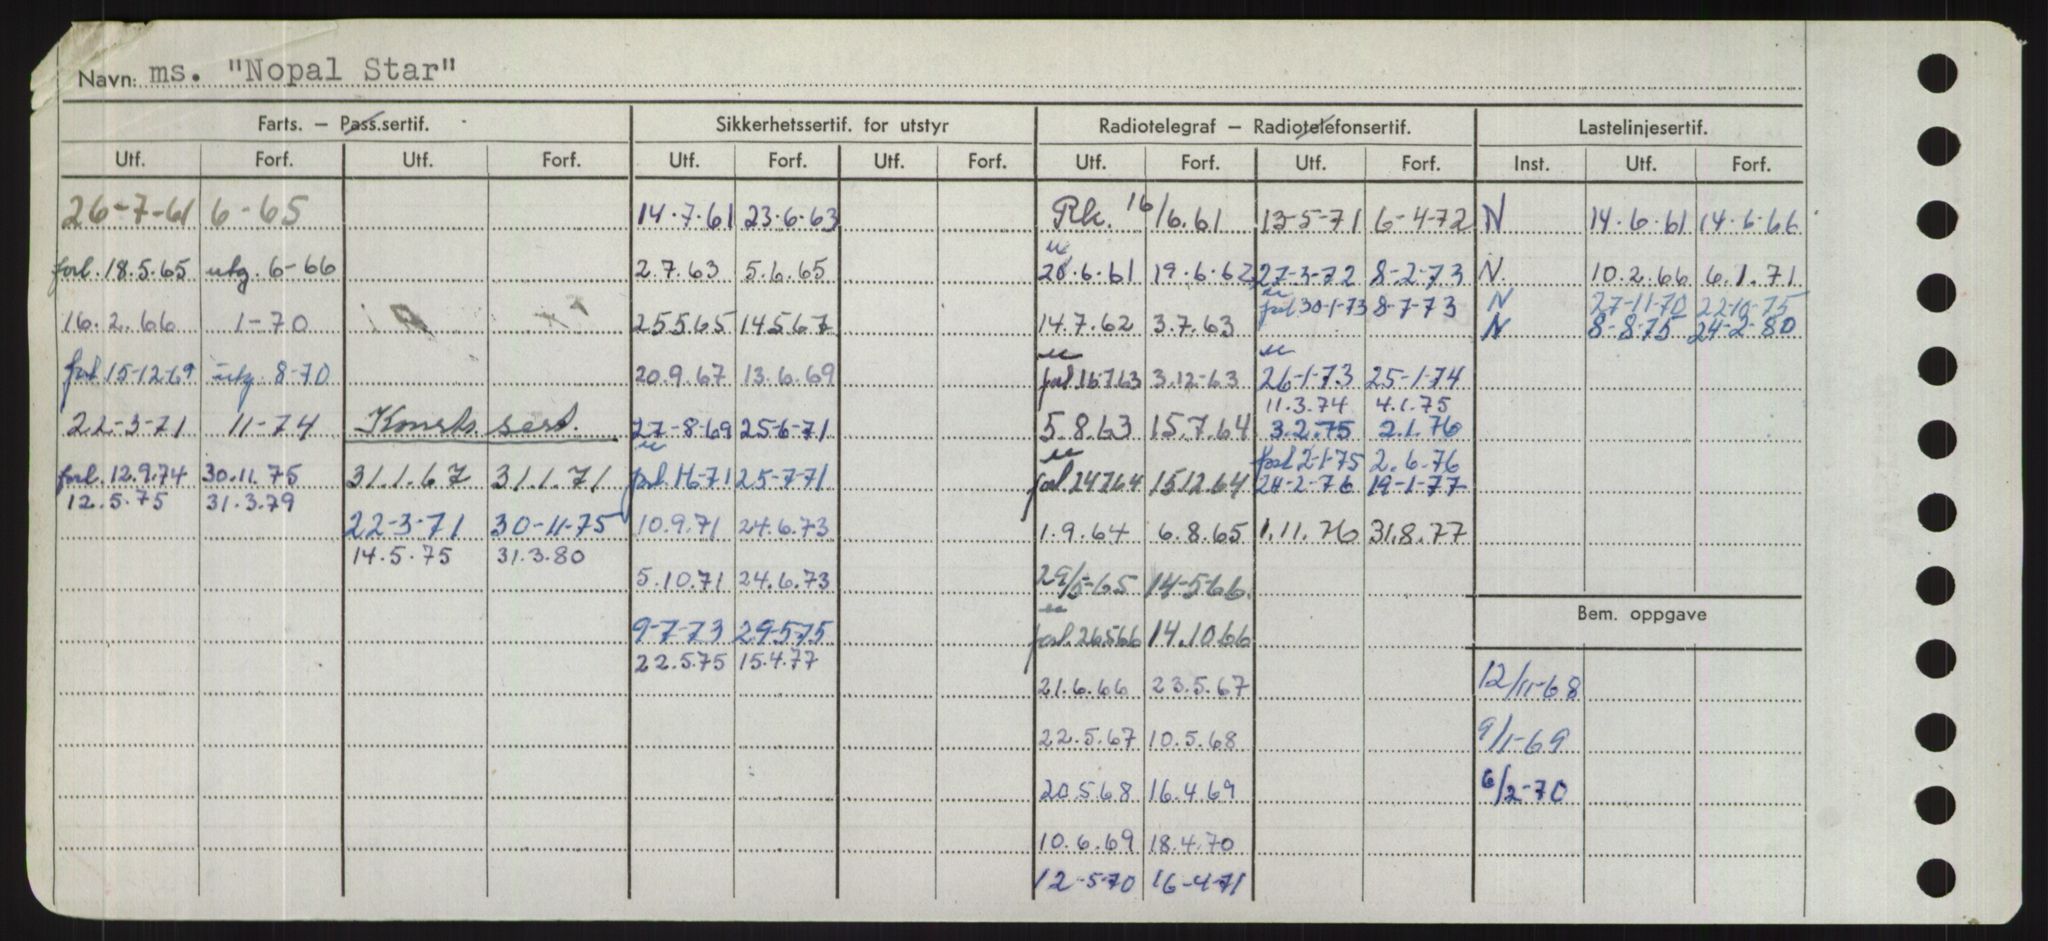 Navn: ms. "Nopal Star"
Farts. – Pass.sertif. Sikkerhetssertif. for utstyr Radiotelegraf – Radiotelefonsertif. Lastelinjesertif.
Utf. Forf. Utf. Forf. Utf. Forf. Utf. Forf. Utf. Forf. Utf. Forf. Inst. Utf. Forf.
26-7-61 6-65 14.7.61 23.6.63 Rk. 16/6.61 13-5-71 6-4-72 N 14.6.61 14.6.66
forl. 18.5.65 utg. 6-66 2.7.63 5.6.65 20.6.61 19.6.62 27-3-72 8-2-73 N. 10.2.66 6.1.71
forl 30-1-73 8-7-73 N 27-11-70 22-10-75
16.2.66 1-70 25565 14567 14.7.62 3.7.63 N 8-8-75 24-2-80
forl 15-12-69 utg 8-70 20.9.67 13.6.69 forl 16763 3.12-63 26-1-73 25-1-74
11.3.74 4.1.75
22-3-71 11-74 Konstr. sert. 27-8-69 25-6-71 5.8.63 15.7.64 3.2.75 2.1.76
forl 2-1-75 2.6.76
forl. 12.9.74 30.11.75 31.1.67 31.1.71 forl 1671 25-7-71 forl 24764 151264 24-2-76 19-1-77
12.5.75 31.3.79
22-3-71 30-11-75 10.9.71 24.6.73 1.9.64 6.8.65 1.11.76 31.8.77
14.5.75 31.3.80
5.10.71 24.6.73 29/5-65 14-5-66.
Bem. oppgave
9-7-73 29-5-75 forl. 26566 14.10.66
22.5.75 15.4.77
21.6.66 23.5.67 12/11-68
22.5.67 10.5.68 9/1-69
20.5.68 16.4.69 6/2-70
10.6.69 18.4.70
12-5-70 16-4-71